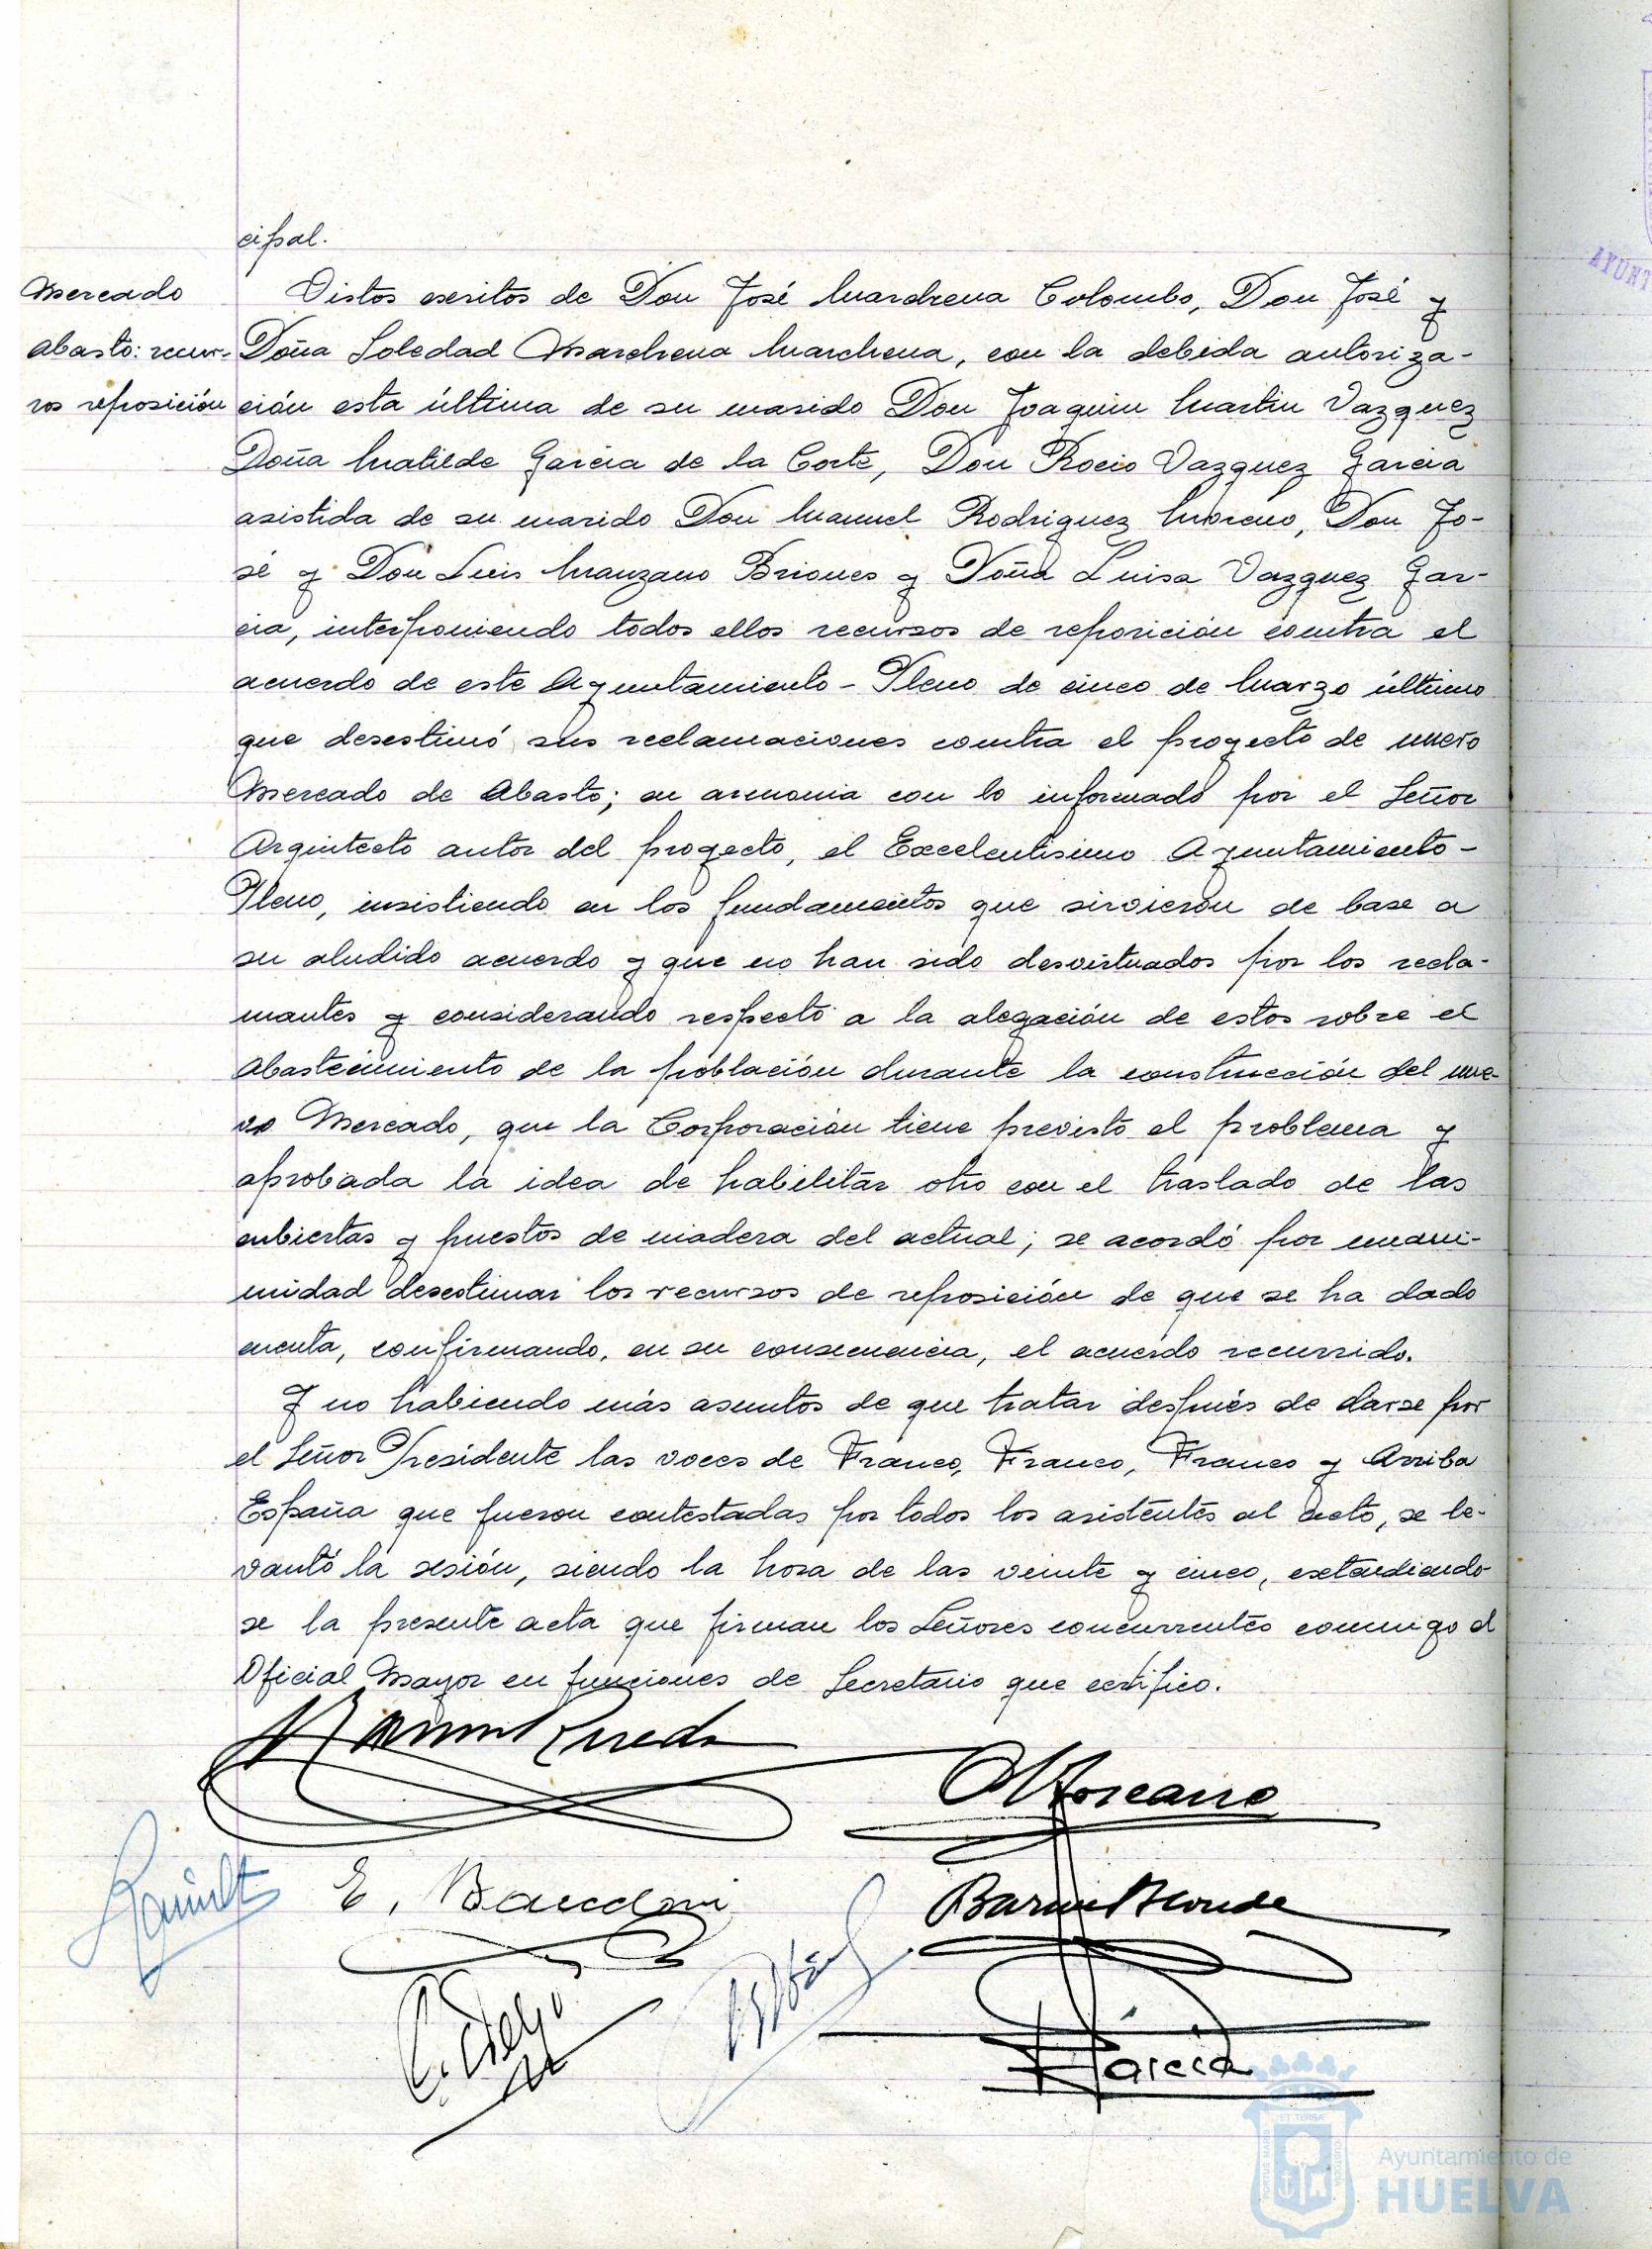 cipal.
Mercado
Abasto: recur-
sos reposición
Vistos escritos de Don José Marchena Colombo, Don José y
Doña Soledad Marchena Marchena, con la debida autoriza-
ción esta última de su marido Don Joaquin Martin Vazquez
Doña Matilde Garcia de la Corte, Don Rocio Vazquez Garcia
asistida de su marido Don Manuel Rodriguez Moreno, Don Jo-
sé y Don Luis Manzano Briones y Doña Luisa Vazquez Gar-
cia, interponiendo todos ellos recursos de reposición contra el
acuerdo de este Ayuntamiento-Pleno de cinco de Marzo último
que desestimó sus reclamaciones contra el proyecto de nuevo
Mercado de Abasto; en armonia con lo informado por el Señor
Arquitecto autor del proyecto, el Excelentisimo Ayuntamiento-
Pleno, insistiendo en los fundamentos que sirvieron de base a
su aludido acuerdo y que no han sido desvirtuados por los recla-
mantes y considerando respecto a la alegación de estos sobre el
Abastecimiento de la población durante la construcción del nue-
vo Mercado, que la Corporación tiene previsto el problema y
aprobada la idea de habilitar otro con el traslado de las
cubiertas y puestos de madera del actual; se acordó por unani-
midad desestimar los recursos de reposición de que se ha dado
cuenta, confirmando, en su consecuencia, el acuerdo recurrido.
Y no habiendo más asuntos de que tratar después de darse por
el Señor Presidente las voces de Franco, Franco, Franco y Arriba
España que fueron contestadas por todos los asistentes al acto, se le-
vantó la sesión, siendo la hora de las veinte y cinco, extendiendo-
se la presente acta que firman los Señores concurrentes conmigo el
Oficial Mayor en funciones de Secretario que certifico.
E.
Garcia
AYUNT
Ayuntamiento de
HUELVA